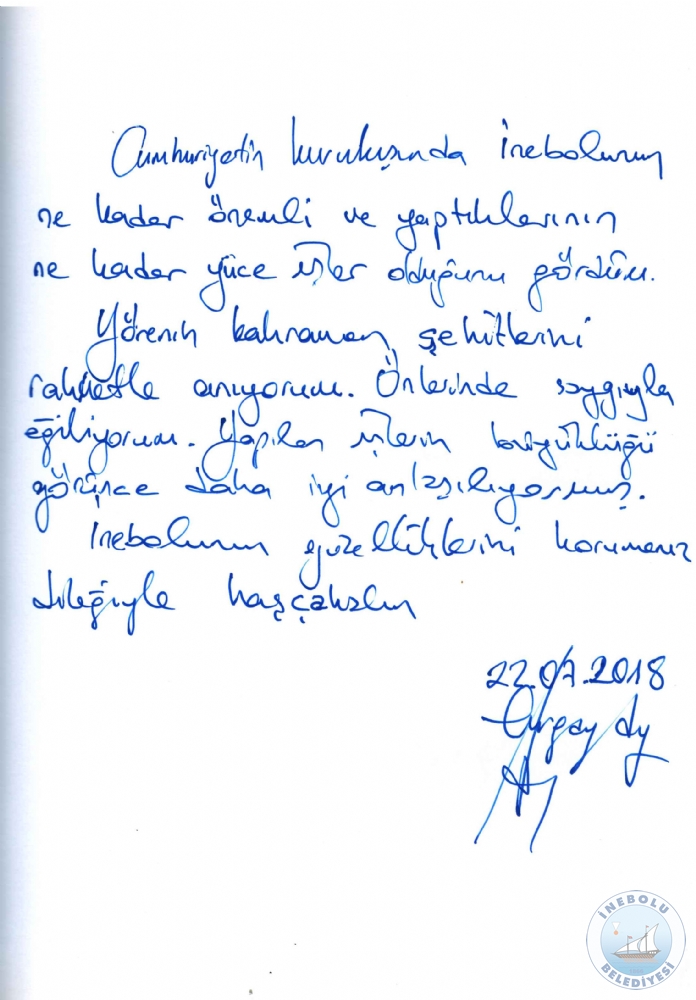 Cumhuriyetin kuruluşunda İnebolunun
ne kadar önemli ve yaptıklarının
ne kadar yüce işler olduğunu gördüm.
Yörenin kahraman şehitlerini
rahmetle anıyorum. Önlerinde saygıyla
eğiliyorum. Yapılan işlerin büyüklüğü
görünce daha iyi anlaşılıyormuş.
İnebolunun güzelliklerini korumanız
dileğiyle hoşçakalın
22.07.2018
İNEBOLU
BELEDİYESİ